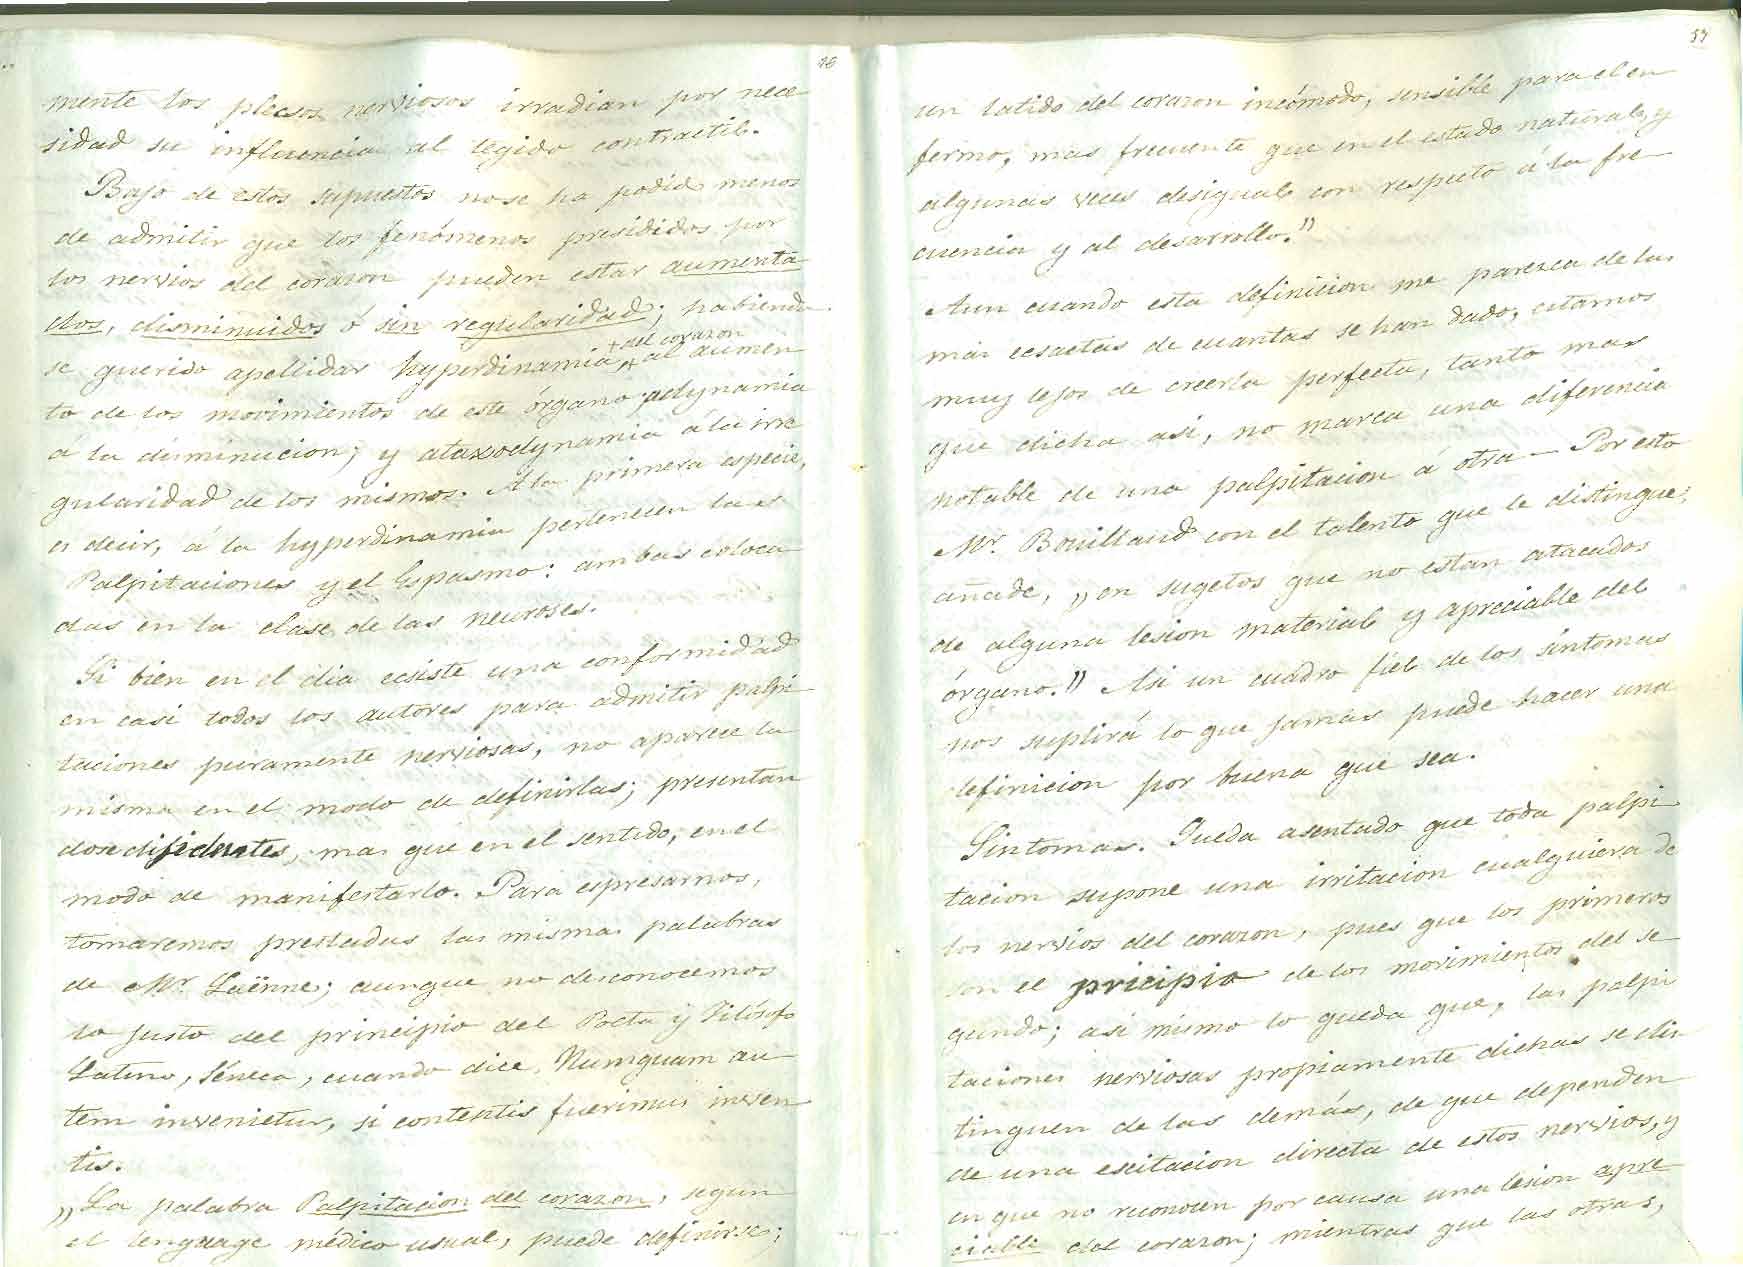 mente los plecsos nerviosos irradian por nece
sidad su influencia al tegido contractil.
Bajo de estos supuestos no se ha podido menos
de admitir que los fenómenos presididos por
los nervios del corazon pueden estar aumenta
dos, disminuidos ó sin regularidad; habiendo
se querido apellidar hyperdinamia + del corazon + al aumen
to de los movimientos de este órgano; adynamia
á la diminucion; y ataxodynamia á la irre
gularidad de los mismos. A la primera especie,
es decir, á la hyperdinamia pertenecen las
Palpitaciones y el Espasmo: ambas coloca
das en la clase de las neuroses.
Si bien en el dia ecsiste una conformidad
en casi todos los autores para admitir palpi
taciones puramente nerviosas, no aparece la
misma en el modo de definirlas; presentan
dose disidentes, mas que en el sentido, en el
modo de manifestarlo. Para espresarnos,
tomaremos prestadas las mismas palabras
de Mr. Laënne; aunque no desconocemos
lo justo del principio del Poeta y Filósofo
Latino, Séneca, cuando dice, Numquam au
tem invenietur, si contentis fuerimus inven
tis.
„La palabra Palpitacion del corazon, segun
el lenguage médico usual, puede definirse;
53
un latido del corazon incómodo, sensible para el en
fermo, mas frecuente que en el estado natural, y
algunas veces desigual con respecto á la fre
cuencia y al desarrollo."
Aun cuando esta definicion me parezca de las
mas ecsactas de cuantas se han dado, estamos
muy lejos de creerla perfecta, tanto mas
que dicha asi, no marca una diferencia
notable de una palpitacion á otra — Por esto
Mr. Bouillaud con el talento que le distingue,
añade, „en sugetos que no estan atacados
de alguna lesion material y apreciable del
órgano." Asi un cuadro fiel de los síntomas
nos suplirá lo que jamas puede hacer una
definicion por buena que sea.
Sintomas. Queda asentado que toda palpi
tacion supone una irritacion cualquiera de
los nervios del corazon, pues que los primeros
son el pricipio de los movimientos del se
gundo; asi mismo lo queda que, las palpi
taciones nerviosas propiamente dichas se dis
tinguen de las demás, de que dependen
de una escitacion directa de estos nervios, y
en que no reconocen por causa una lesion apre
ciable del corazon; mientras que las otras,